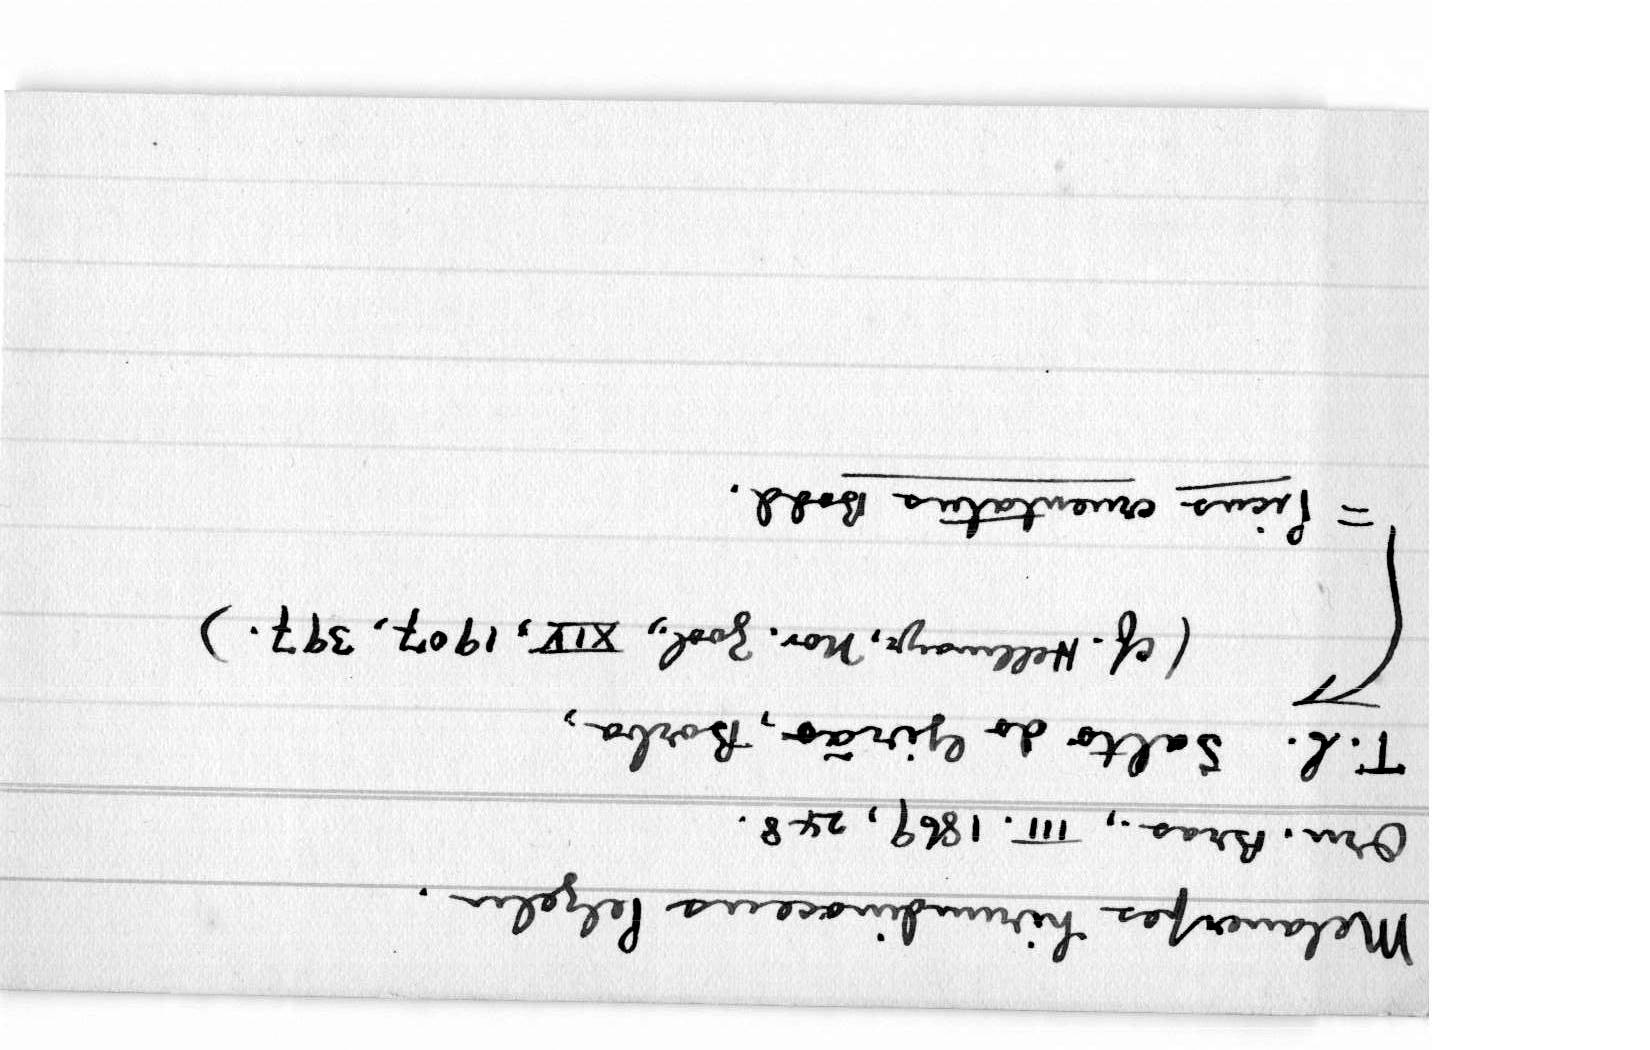 Melanerpes hirundinaceus Pelzeln.
Orn. Bras., III. 1869, 248.
T.l. Salto do Girão, Borba,
(cf. Hellmayr, Nov. Zool., XIV, 1907, 397.)
= Picus cruentatus Bodd.